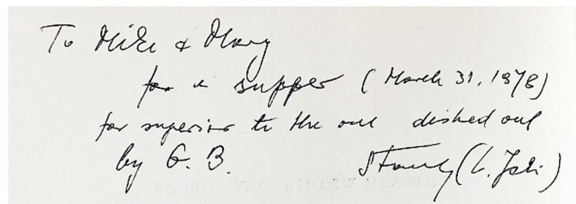 To Mike & Mary
for a supper (March 31, 1978)
far superior to the one dished out
by G. B. Stanley (L. Jaki)